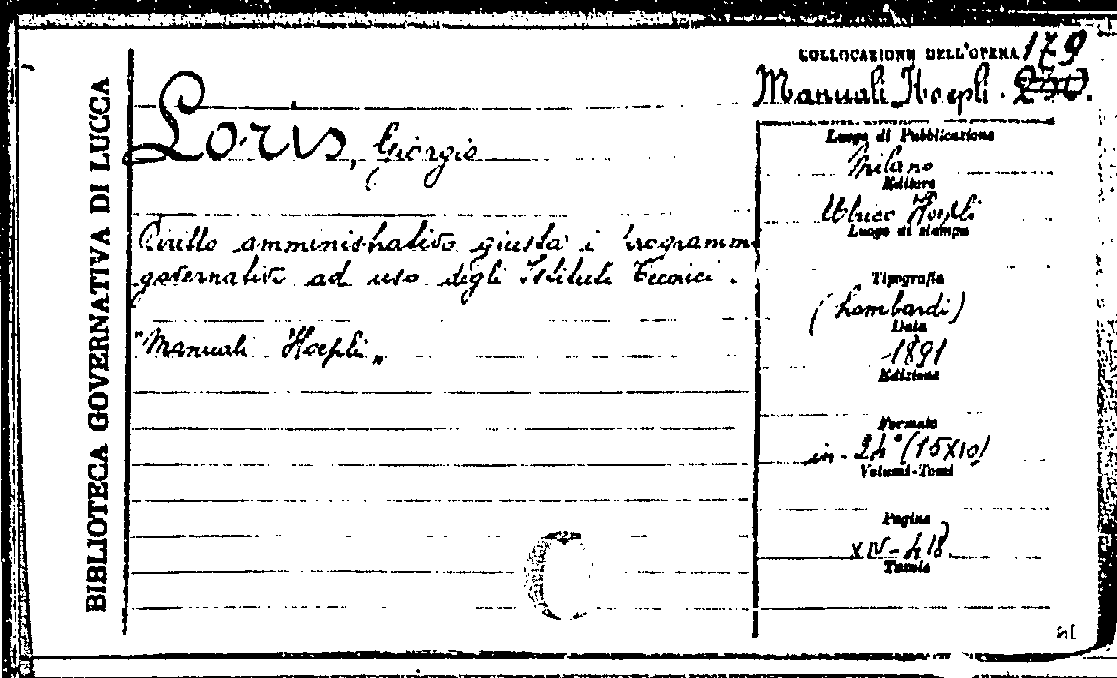 BIBLIOTECA GOVERNATIVA DI LUCCA
COLLOCAZIONE DELL'OPERA 179
Manuali Hoepli. 230.
Loris, Giorgio
Diritto amministrativo giusta i programmi
governativi ad uso degli Istituti Tecnici.
"Manuali Hoepli"
Luogo di Pubblicazione
Milano
Editore
Ulrico Hoepli
Luogo di stampa
Tipografia
(Lombardi)
Data
1891
Edizione
Formato
in-24° (15x10)
Volumi-Tomi
Pagine
XIV-418
Tavole